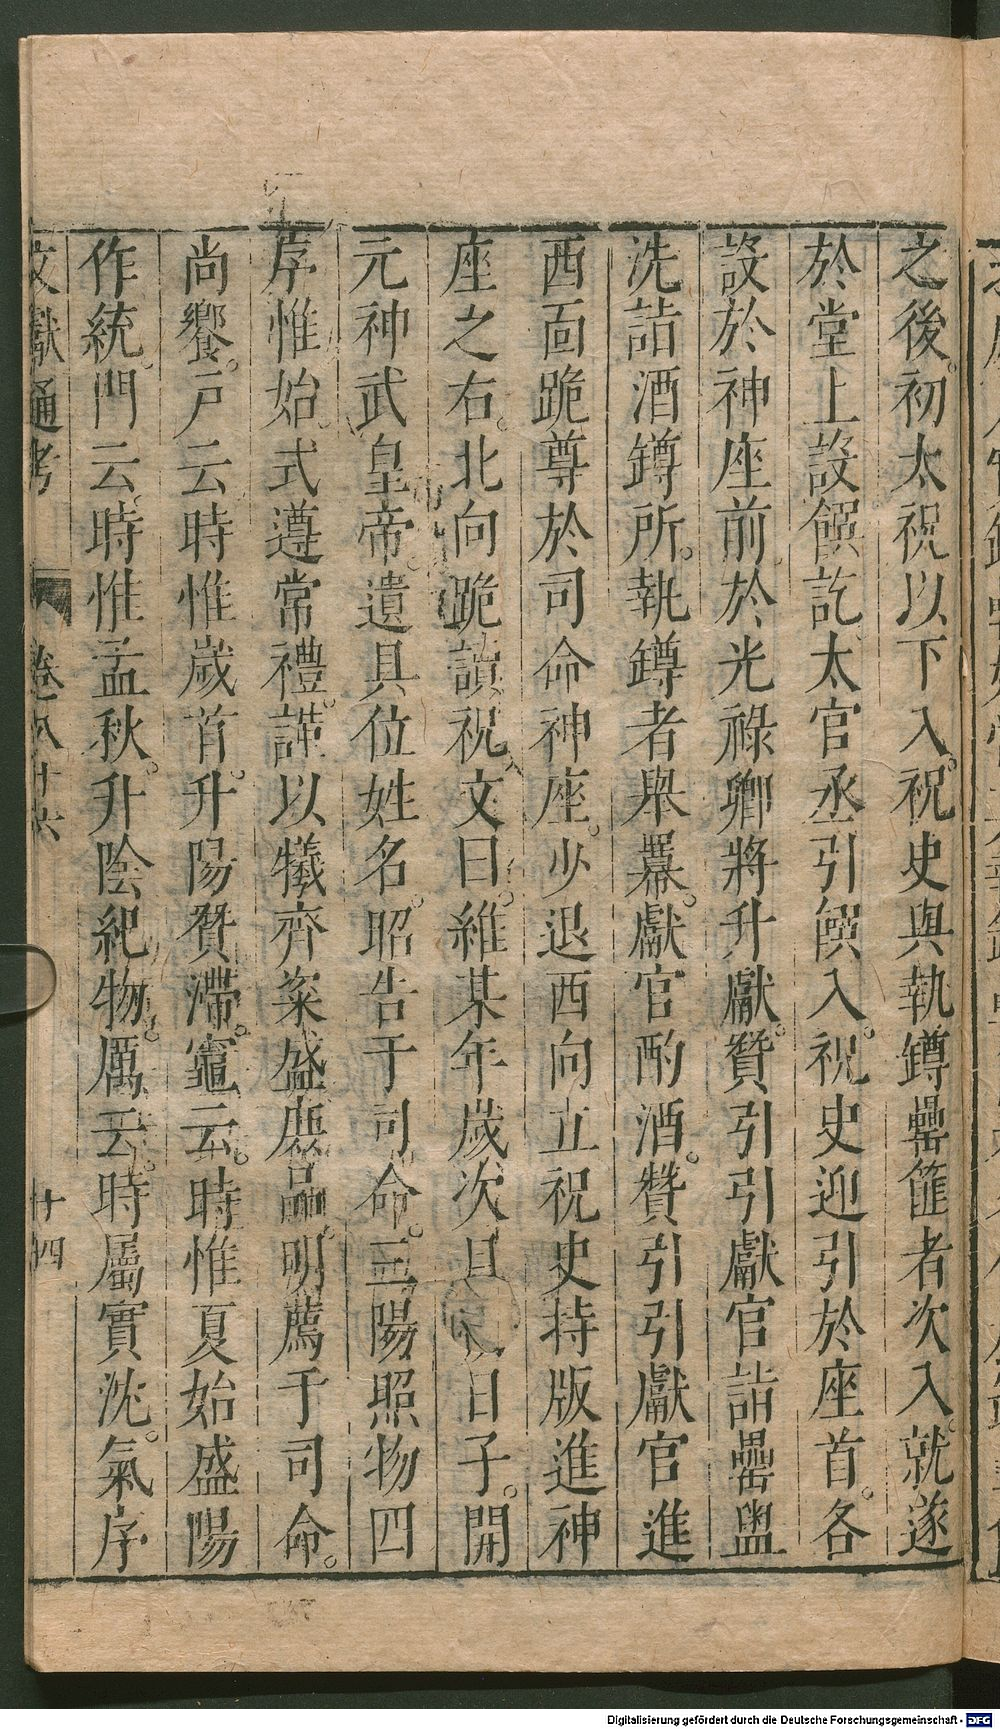 之後初太祝以下入祝史與執罇罍篚者次入就遂
於堂上設饌訖太官丞引饌入祝史迎引於座首各
設於神座前於光祿卿將升獻贊引引獻官詣罍盥
洗詣酒罇所執罇者舉羃獻官酌酒贊引引獻官進
西面跪尊於司命神座少退西向立祝史持版進神
座之右北向跪讀祝文曰維某年歲次日子開
元神武皇帝遺具位姓名昭告于司命三陽照物四
序惟始式遵常禮謹以犧齊粢盛庶品明薦于司命
尚饗戶云時惟歲首升陽贊滯竈云時惟夏始盛陽
作統門云時惟孟秋升陰紀物厲云時屬實沈氣序
文獻通考 卷八十六 十四
Digitalisierung gefördert durch die Deutsche Forschungsgemeinschaft - DFG